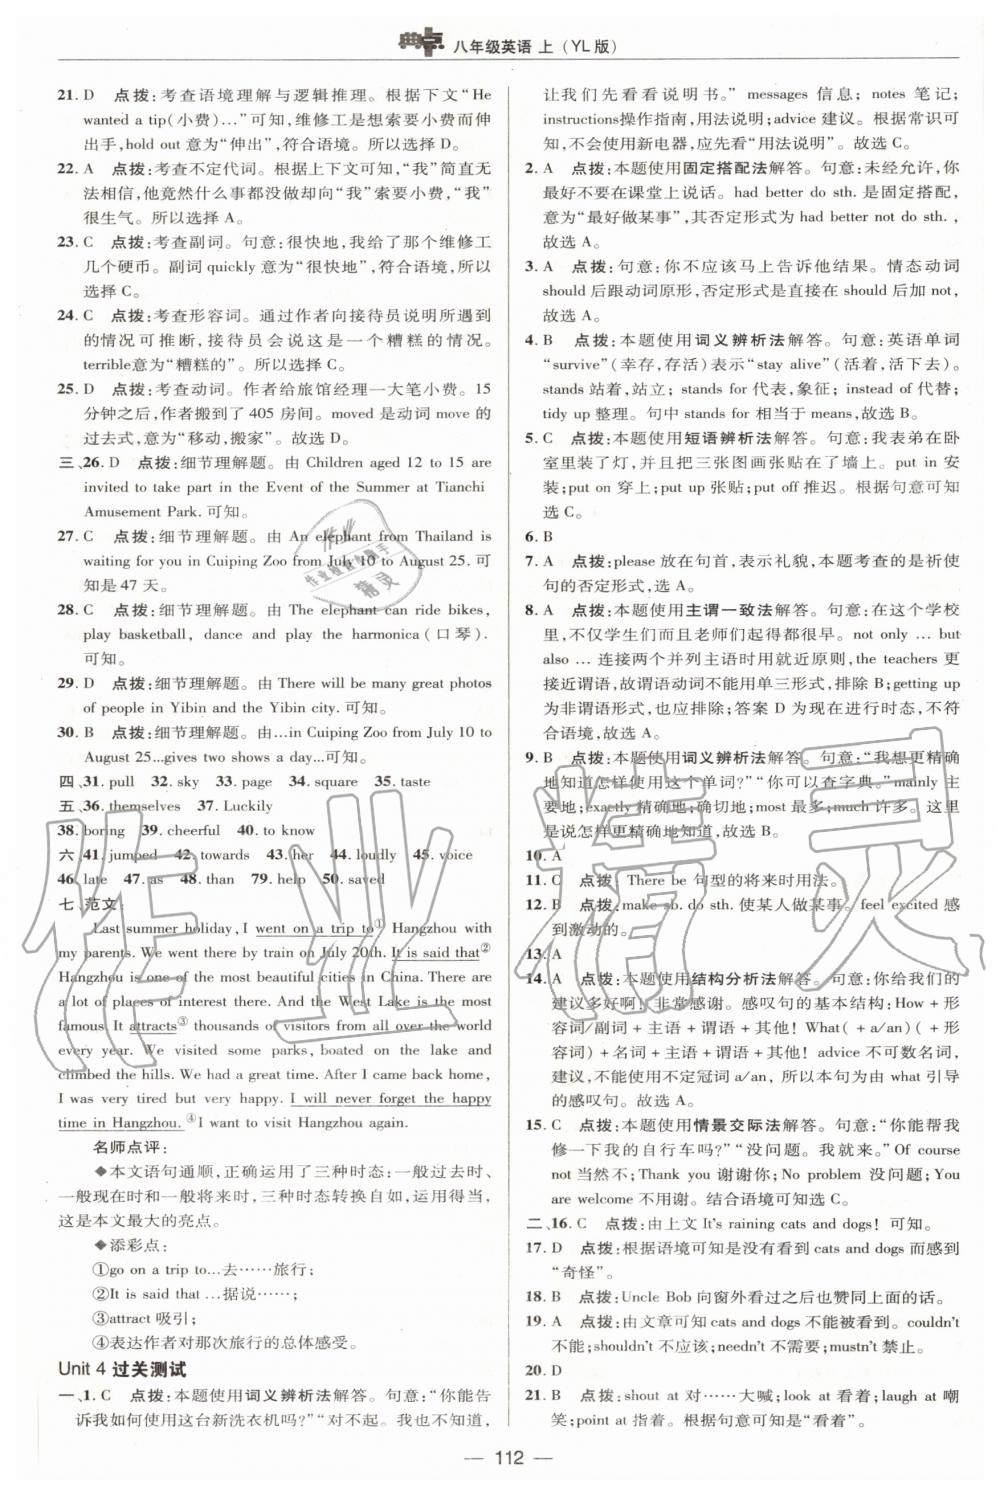 典中点 八年级英语 上(YL版)
21. D 点拨:考查语境理解与逻辑推理。根据下文“He
wanted a tip(小费)…”可知,维修工是想要小费而伸
出手,hold out 意为“伸出”,符合语境。所以选择 D。
22. A 点拨:考查不定代词。根据上下文可知,“我”简直无
法相信,他竟然什么事都没做却向“我”索要小费,“我”
很生气。所以选择 A。
23. C 点拨:考查副词。句意:很快地,我给了那个维修工
几个硬币。副词 quickly 意为“很快地”,符合语境,所以
选择 C。
24. C 点拨:考查形容词。通过作者向接待员说明所遇到
的情况可推断,接待员会说这是一个糟糕的情况。
terrible意为“糟糕的”。所以选择 C。
25. D 点拨:考查动词。作者给旅馆经理一大笔小费。15
分钟之后,作者搬到了 405 房间。moved 是动词 move 的
过去式,意为“移动,搬家”。故选 D。
三、26. D 点拨:细节理解题。由 Children aged 12 to 15 are
invited to take part in the Event of the Summer at Tianchi
Amusement Park. 可知。
27. C 点拨:细节理解题。由 An elephant from Thailand is
waiting for you in Cuiping Zoo from July 10 to August 25. 可
知是 47 天。
28. C 点拨:细节理解题。由 The elephant can ride bikes,
play basketball, dance and play the harmonica(口琴).
可知。
29. D 点拨:细节理解题。由 There will be many great photos
of people in Yibin and the Yibin city. 可知。
30. B 点拨:细节理解题。由…in Cuiping Zoo from July 10 to
August 25…gives two shows a day…可知。
四、31. pull 32. sky 33. page 34. square 35. taste
五、36. themselves 37. Luckily
38. boring 39. cheerful 40. to know
六、41. jumped 42. towards 43. her 44. loudly 45. voice
46. late 47. as 48. than 79. help 50. saved
七、范文:
Last summer holiday, I went on a trip to① Hangzhou with
my parents. We went there by train on July 20th. It is said that②
Hangzhou is one of the most beautiful cities in China. There are
a lot of places of interest there. And the West Lake is the most
famous. It attracts③ thousands of visitors from all over the world
every year. We visited some parks, boated on the lake and
climbed the hills. We had a great time. After I came back home,
I was very tired but very happy. I will never forget the happy
time in Hangzhou.④ I want to visit Hangzhou again.
名师点评:
◆本文语句通顺,正确运用了三种时态:一般过去时、
一般现在时和一般将来时,三种时态转换自如,运用得当,
这是本文最大的亮点。
◆添彩点:
①go on a trip to…去……旅行;
②It is said that …据说……;
③attract 吸引;
④表达作者对那次旅行的总体感受。
Unit 4 过关测试
一、1. C 点拨:本题使用词义辨析法解答。句意:“你能告
诉我如何使用这台新洗衣机吗?”“对不起。我也不知道,
让我们先看看说明书。”messages 信息;notes 笔记;
instructions操作指南,用法说明;advice 建议。根据常识可
知,不会使用新电器,应先看“用法说明”。故选 C。
2. A 点拨:本题使用固定搭配法解答。句意:未经允许,你
最好不要在课堂上说话。had better do sth. 是固定搭配,
意为“最好做某事”,其否定形式为 had better not do sth.,
故选 A。
3. A 点拨:句意:你不应该马上告诉他结果。情态动词
should 后跟动词原形,否定形式是直接在 should 后加 not,
故选 A。
4. B 点拨:本题使用词义辨析法解答。句意:英语单词
“survive”(幸存,存活)表示“stay alive”(活着,活下去)。
stands 站着,站立;stands for 代表,象征;instead of 代替;
tidy up 整理。句中 stands for 相当于 means,故选 B。
5. C 点拨:本题使用短语辨析法解答。句意:我表弟在卧
室里装了灯,并且把三张图画张贴在了墙上。put in 安
装;put on 穿上;put up 张贴;put off 推迟。根据句意可知
选 C。
6. B
7. A 点拨:please 放在句首,表示礼貌,本题考查的是祈使
句的否定形式,选 A。
8. A 点拨:本题使用主谓一致法解答。句意:在这个学校
里,不仅学生们而且老师们都起得都很早。not only … but
also … 连接两个并列主语时用就近原则,the teachers 更
接近谓语,故谓语动词不能用单三形式,排除 B;getting up
为非谓语形式,也应排除;答案 D 为现在进行时态,不符
合语境,故选 A。
9. B 点拨:本题使用词义辨析法解答。句意:“我想更精确
地知道怎样使用这个单词?”“你可以查字典。”mainly 主
要地;exactly 精确地;确切地;most 最多;much 许多。这里
是说怎样更精确地知道,故选 B。
10. A
11. C 点拨:There be 句型的将来时用法。
12. B 点拨:make sb. do sth. 使某人做某事。feel excited 感
到激动的。
13. A
14. A 点拨:本题使用结构分析法解答。句意:你给我们的
建议多好啊!非常感谢。感叹句的基本结构:How + 形
容词/副词 + 主语 + 谓语 + 其他!What( + a/an)( + 形
容词) + 名词 + 主语 + 谓语 + 其他!advice 不可数名词,
建议,不能使用不定冠词 a/an,所以本句为由 what 引导
的感叹句。故选 A。
15. C 点拨:本题使用情景交际法解答。句意:“你能帮我
修一下我的自行车吗?”“没问题。我就来。”Of course
not 当然不;Thank you 谢谢你;No problem 没问题;You
are welcome 不用谢。结合语境可知选 C。
二、16. C 点拨:由上文 It's raining cats and dogs! 可知。
17. D 点拨:根据语境可知是没有看到 cats and dogs 而感到
“奇怪”。
18. B 点拨:Uncle Bob 向窗外看过之后也赞同上面的话。
19. A 点拨:由文章可知 cats and dogs 不能看到。couldn't
不能;shouldn't 不应该;needn't 不需要;mustn't 禁止。
20. D
21. B 点拨:shout at 对……大喊;look at 看着;laugh at 嘲
笑;point at 指着。根据句意可知是“看着”。
— 112 —
作业精灵